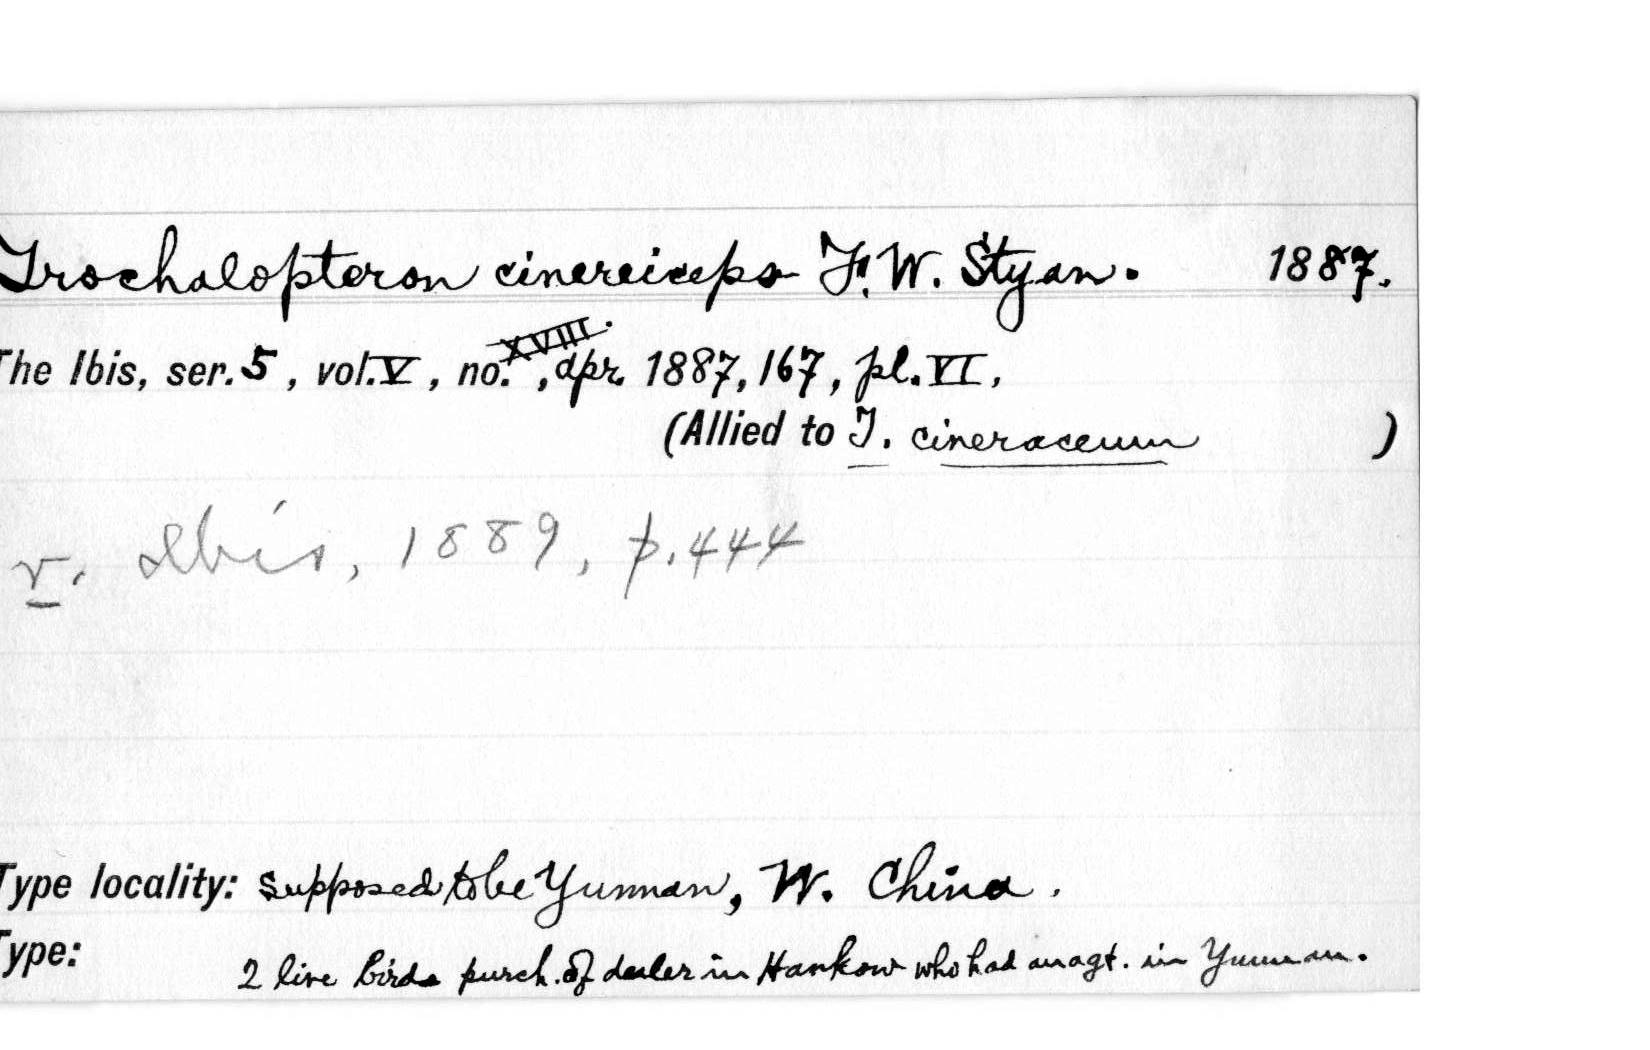 Trochalopteron cinereiceps F. W. Styan. 1887.
The Ibis, ser. 5, vol. V, no. XVIII., Apr. 1887, 167, pl. VI,
(Allied to T. cineraceum )
v. Ibis, 1889, p. 444
Type locality: supposed to be Yunnan, W. China.
Type: 2 live birds purch. of dealer in Hankow who had an agt. in Yunnan.